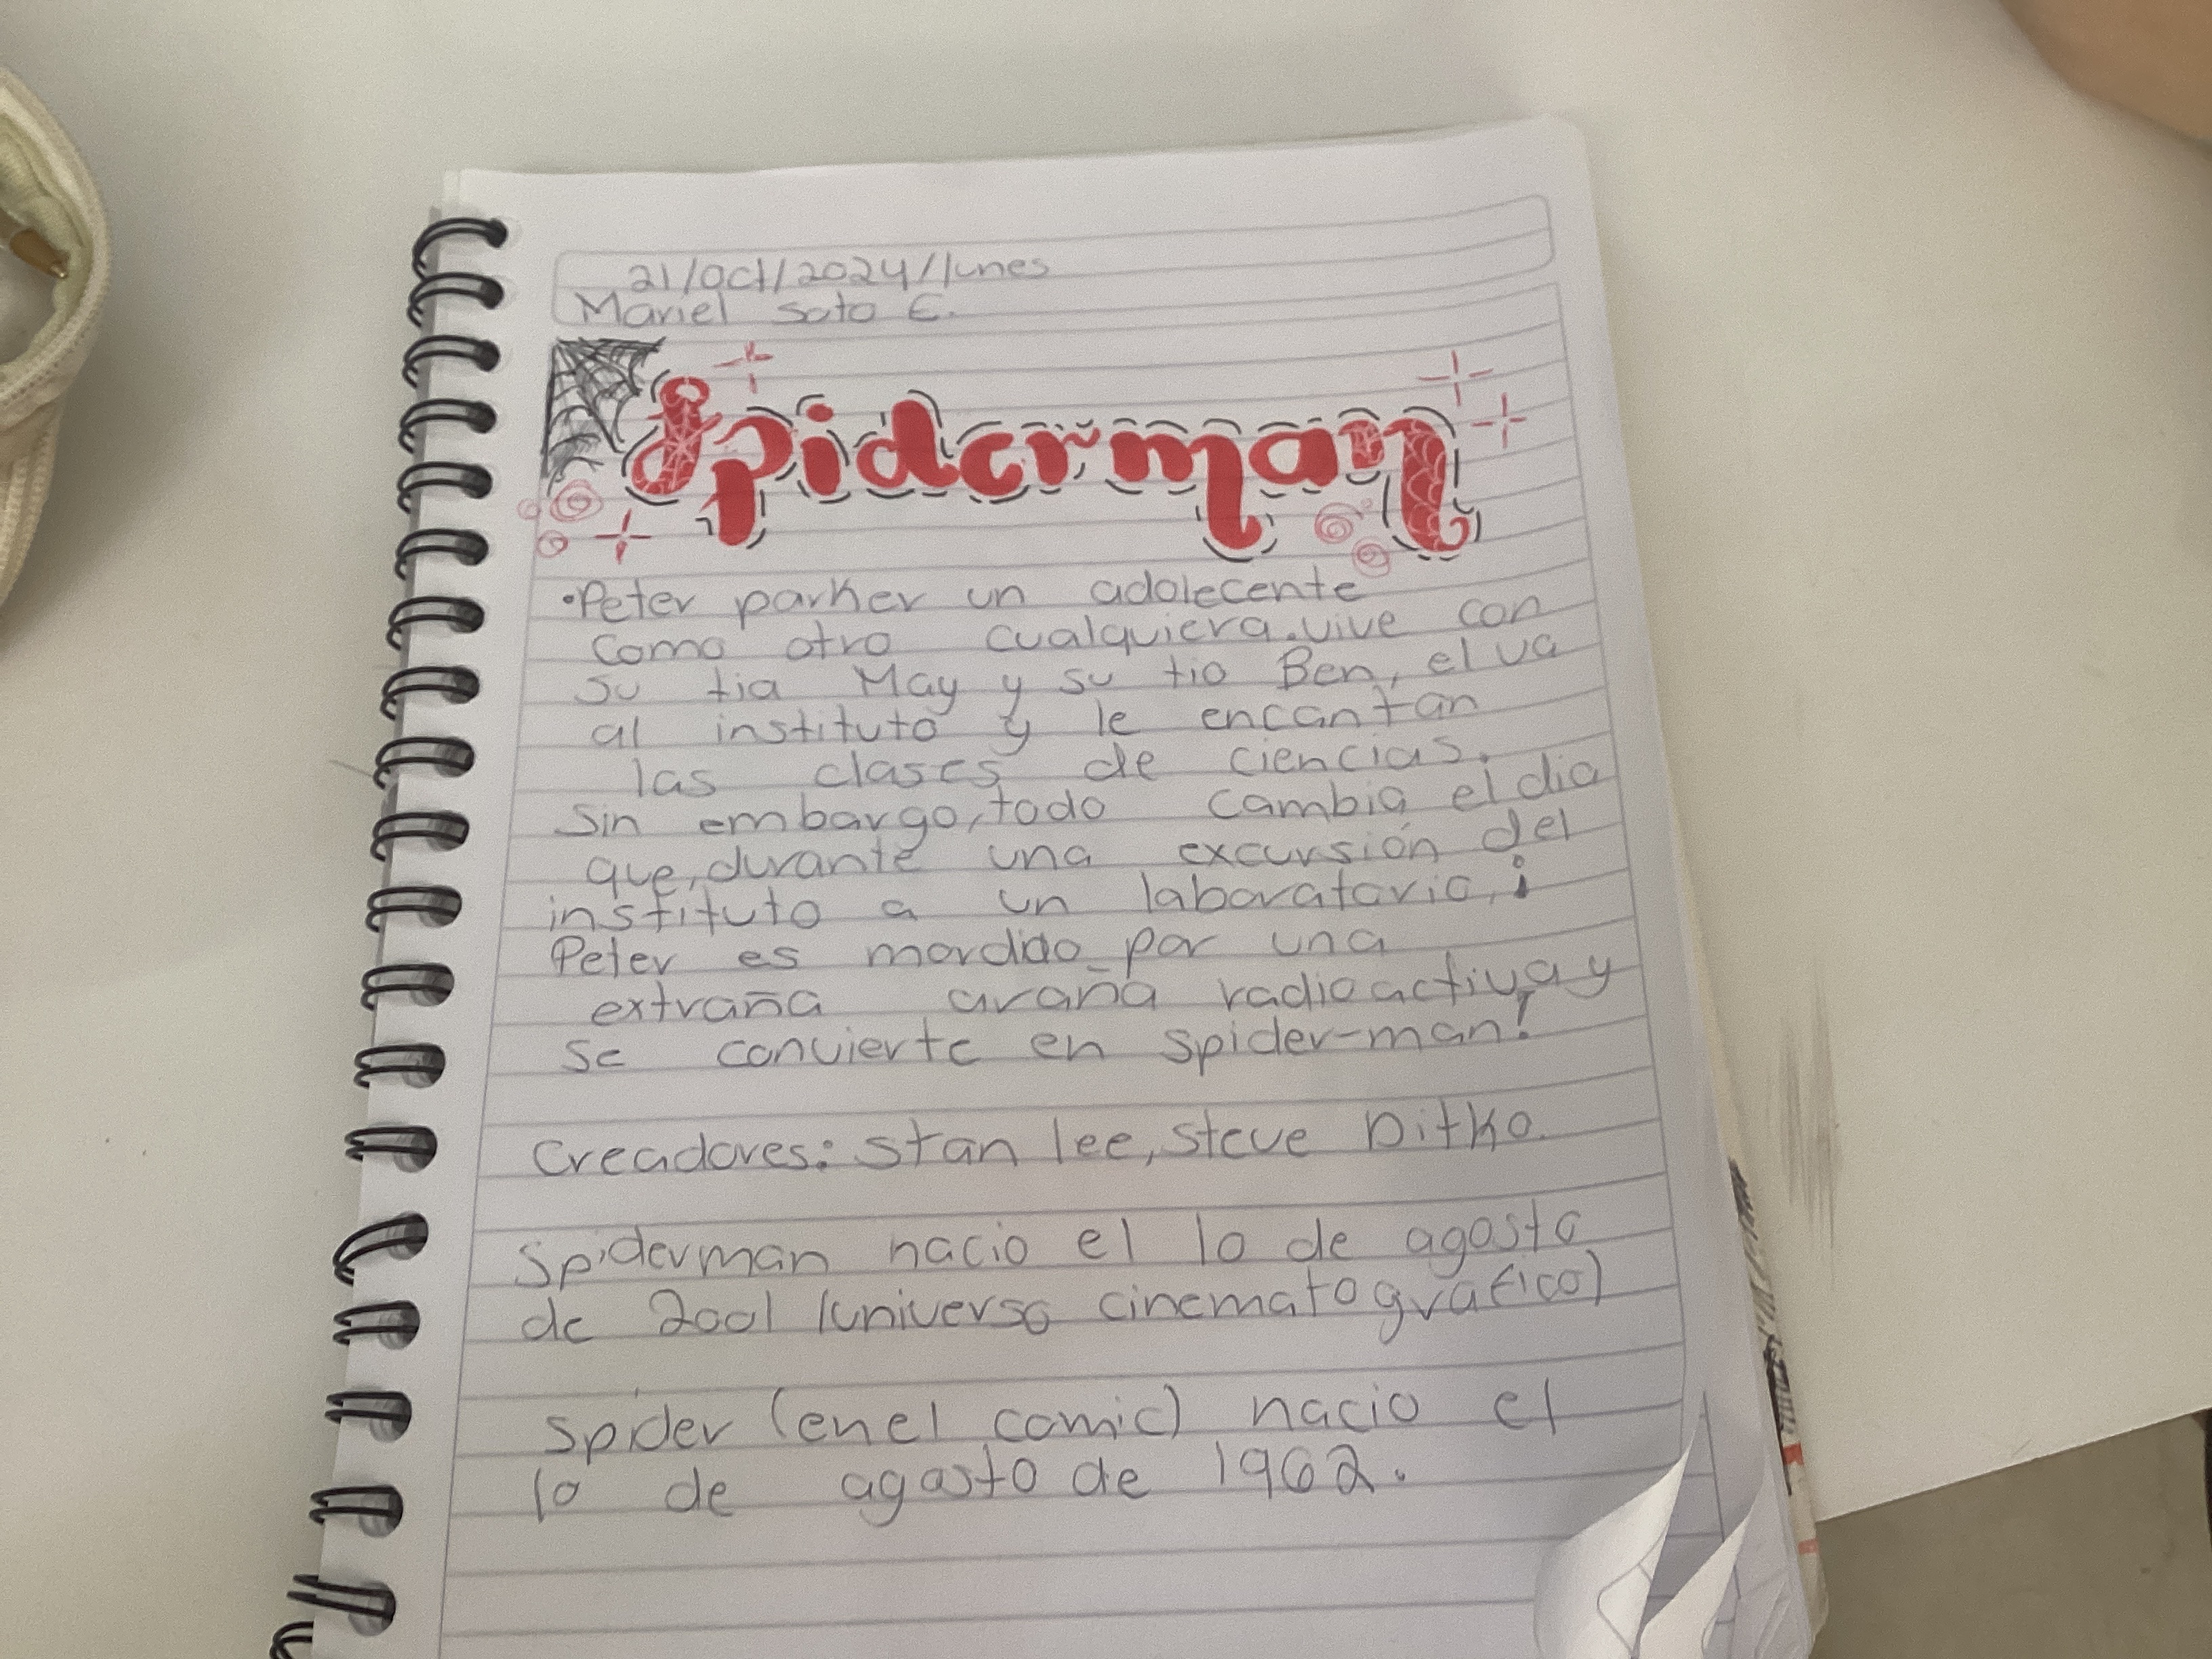 21/oct/2024/lunes
Mariel Soto E.
Spiderman
•Peter parker un adolecente
como otro cualquiera.vive con
su tia May y su tio Ben, el va
al instituto y le encantan
las clases de ciencias.
Sin embargo, todo cambia el dia
que, durante una excursión del
instituto a un laboratorio, ¡
Peter es mordido por una
extraña araña radioactiva y
se convierte en spider-man!
Creadores: Stan lee, Steve Ditko.
Spiderman nacio el 10 de agosto
de 2001 (universo cinematografico)
Spider (en el comic) nacio el
10 de agosto de 1962.